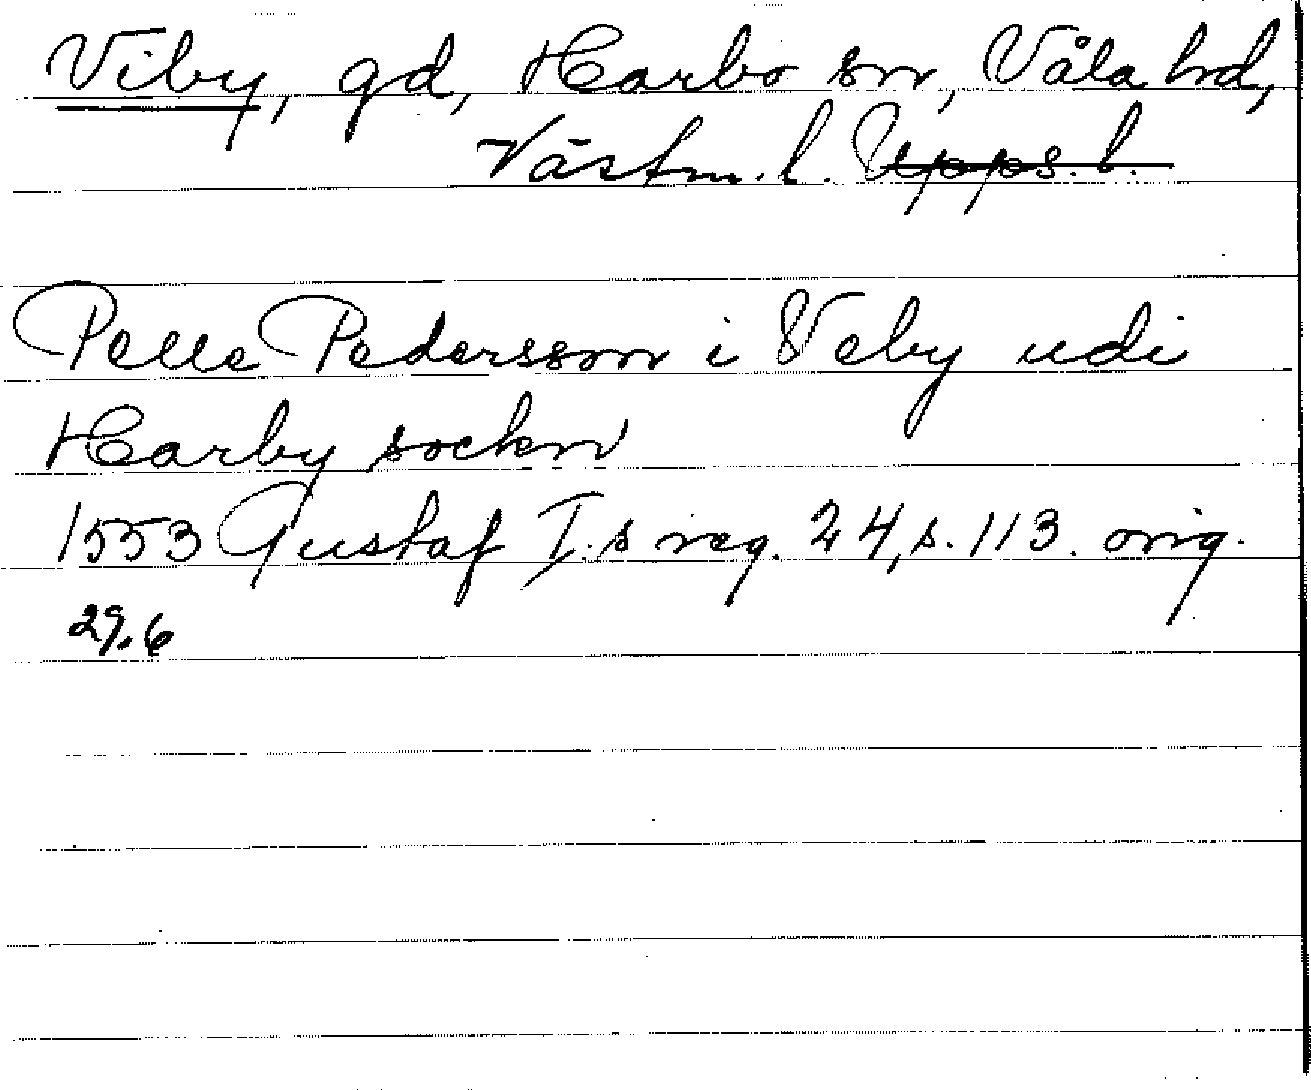 Viby, gd, Harbo sn, Våla hd,
Västm. l. Upps. l.
Pelle Pedersson i Veby udi
Harby sockn
1553 Gustaf I.s reg. 24, s. 113. orig.
29.6